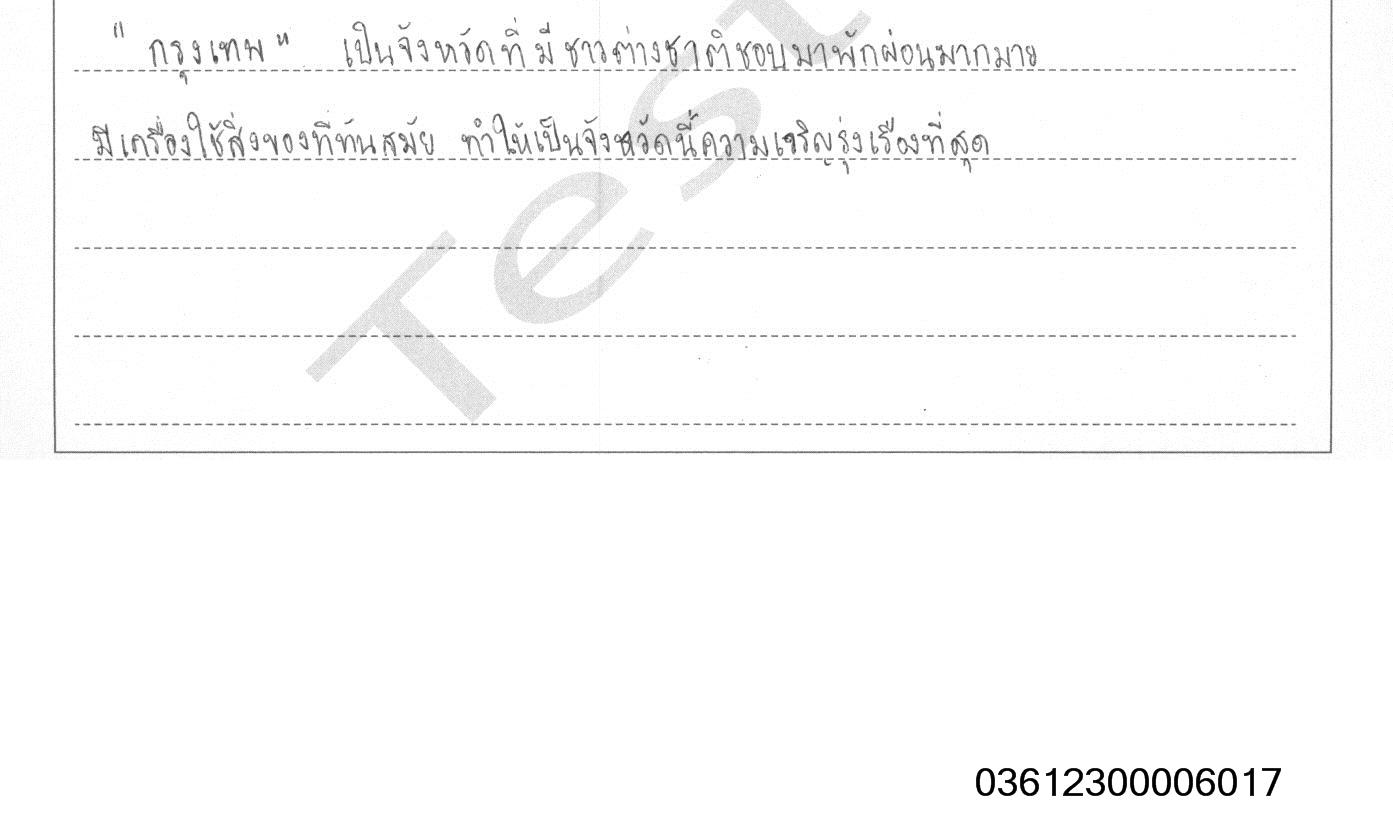 " กรุงเทพ " เป็นจังหวัดที่มีชาวต่างชาติชอบมาพักผ่อนมากมาย
มีเครื่องใช้สิ่งของที่ทันสมัย ทำให้เป็นจังหวัดนี้ความเจริญรุ่งเรืองที่สุด
Test
03612300006017